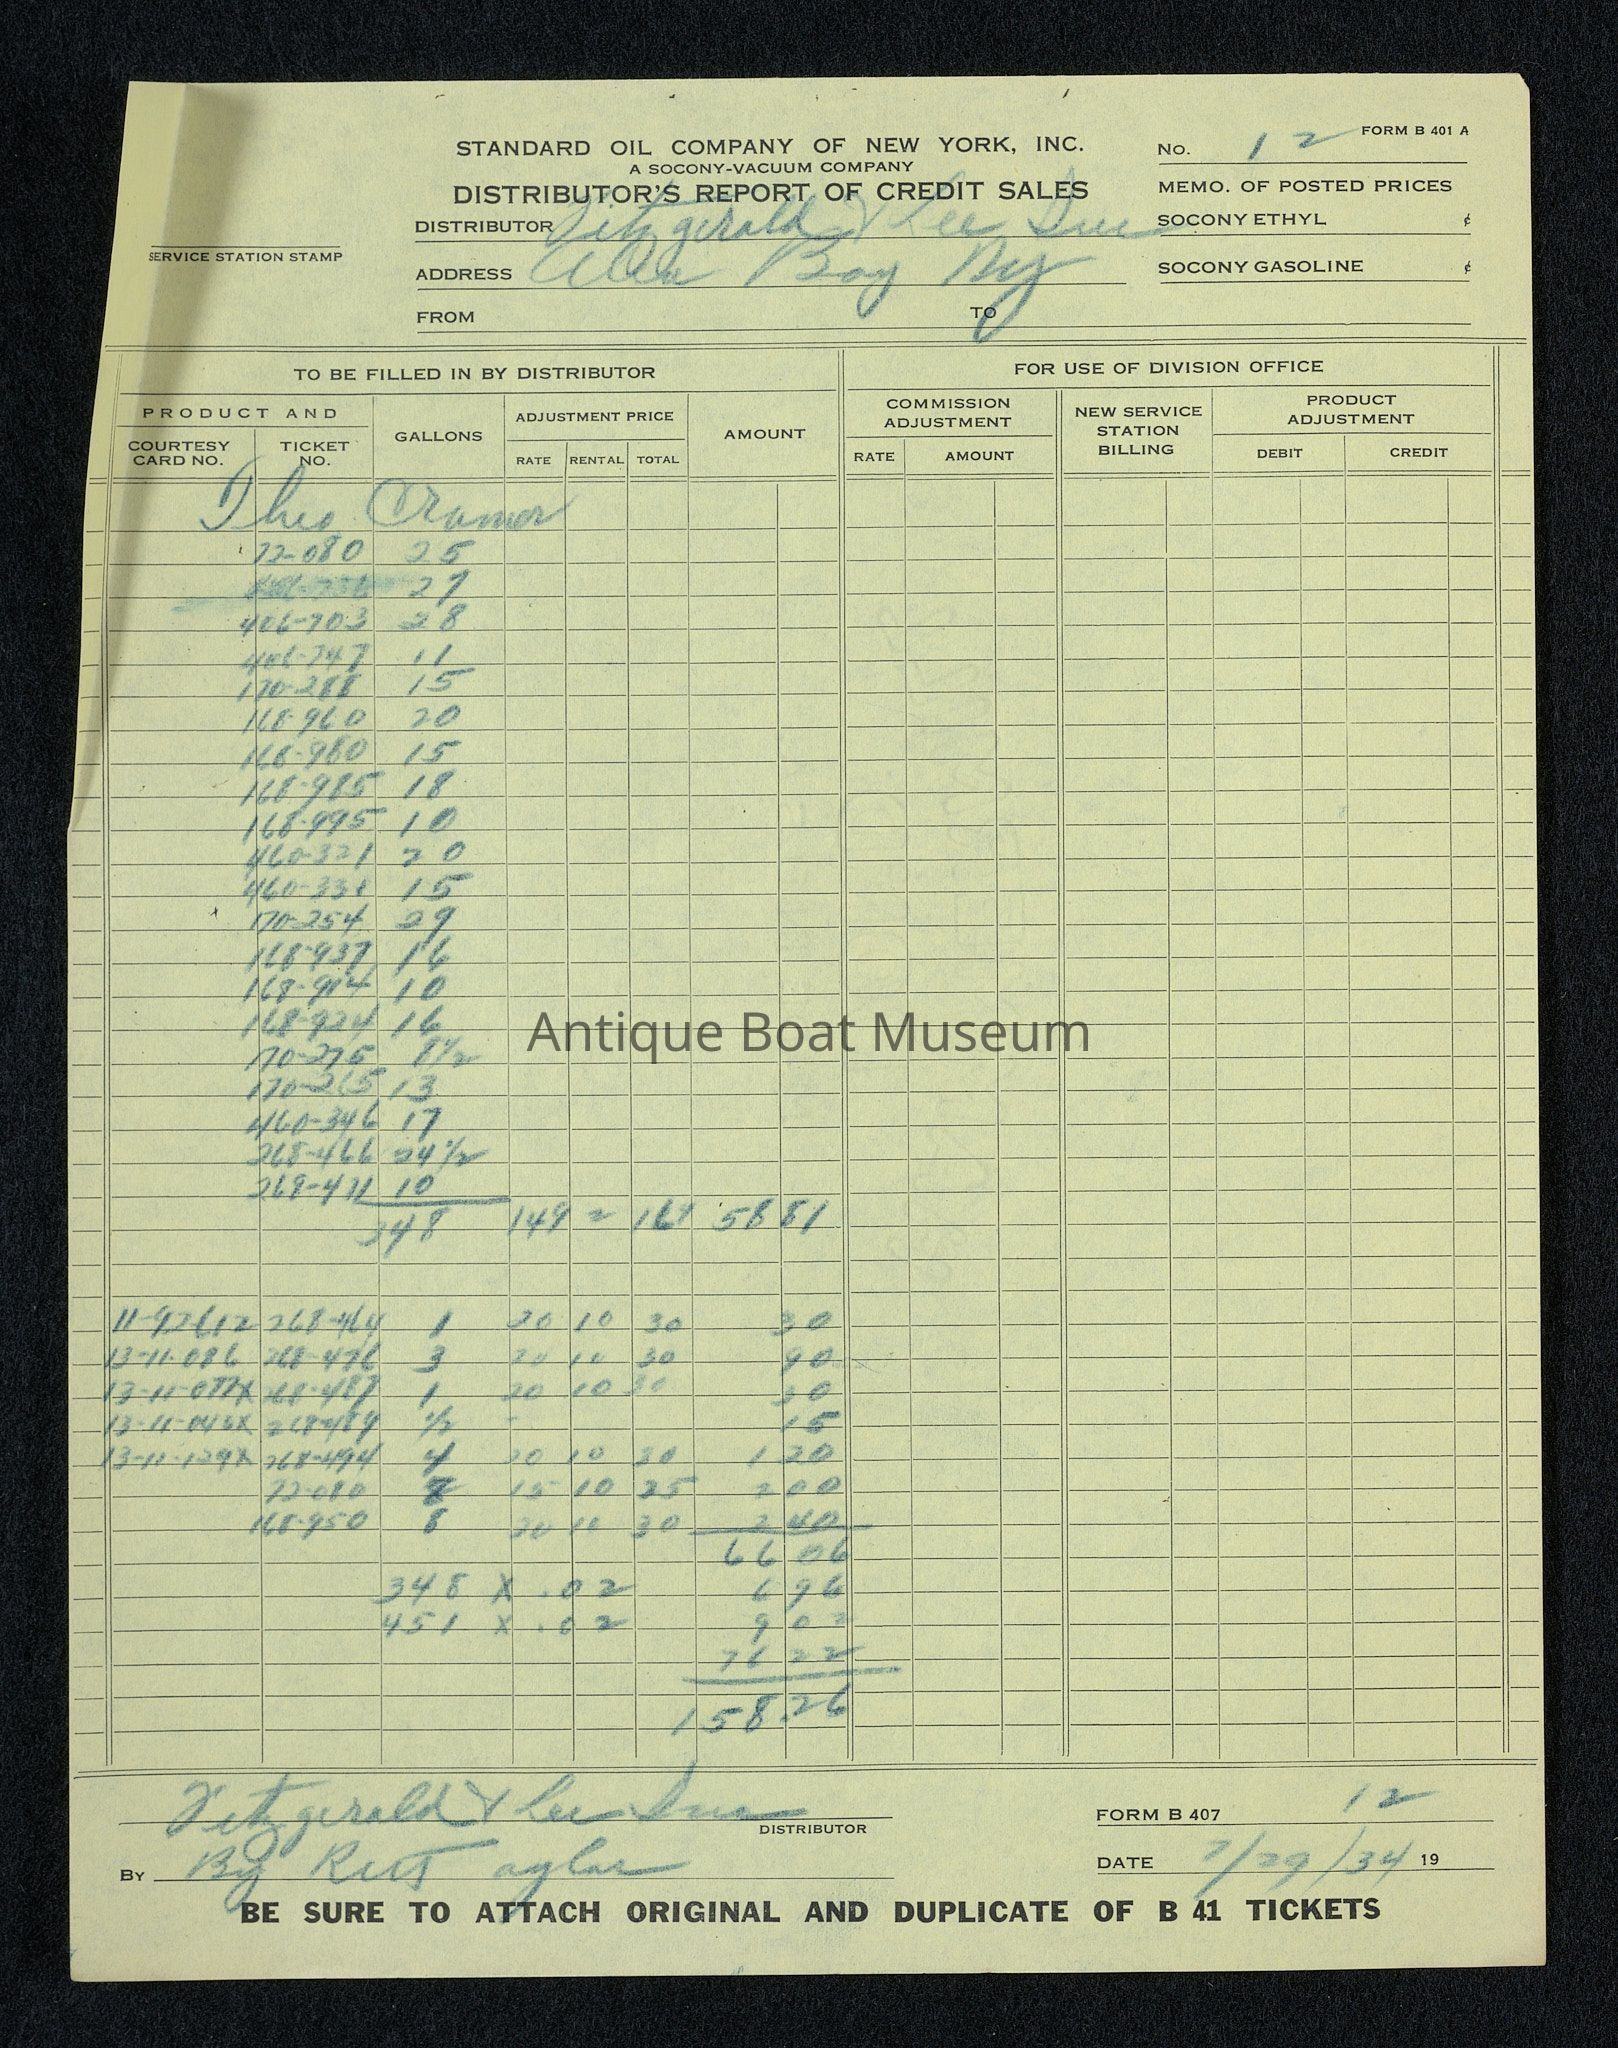 FORM B 401 A
STANDARD OIL COMPANY OF NEW YORK, INC.
No. 12
A SOCONY-VACUUM COMPANY
DISTRIBUTOR'S REPORT OF CREDIT SALES
MEMO. OF POSTED PRICES
DISTRIBUTOR Fitzgerald & Lee Inc
SOCONY ETHYL ¢
SERVICE STATION STAMP
ADDRESS Alex Bay Ny
SOCONY GASOLINE ¢
FROM TO
TO BE FILLED IN BY DISTRIBUTOR FOR USE OF DIVISION OFFICE
PRODUCT AND GALLONS ADJUSTMENT PRICE AMOUNT COMMISSION ADJUSTMENT NEW SERVICE STATION BILLING PRODUCT ADJUSTMENT
COURTESY CARD NO. TICKET NO. RATE RENTAL TOTAL RATE AMOUNT DEBIT CREDIT
Theo Cramer
72-080 25
27
406-703 28
406-747 11
170-288 15
168-960 20
168-980 15
168-985 18
168-995 10
460-321 20
460-331 15
170-254 29
168-937 16
168-914 10
168-924 16
170-275 8 1/2
170-265 13
460-346 17
268-466 24 1/2
269-471 10
348 149 2 169 58 81
11-92612 268-464 1 20 10 30 30
13-11-086 268-476 3 20 10 30 90
13-11-077X 268-487 1 20 10 30 30
13-11-045X 268-489 1/2 - 15
13-11-129X 268-494 4 20 10 30 1 20
72-080 8 15 10 25 2 00
168-950 8 20 10 30 2 40
66 06
348 X .02 6 96
451 X .02 9 02
76 22
158.26
Fitzgerald & Lee Inc
DISTRIBUTOR
FORM B 407 12
BY By Taylor
DATE 7/29/34 19
BE SURE TO ATTACH ORIGINAL AND DUPLICATE OF B 41 TICKETS
Antique Boat Museum